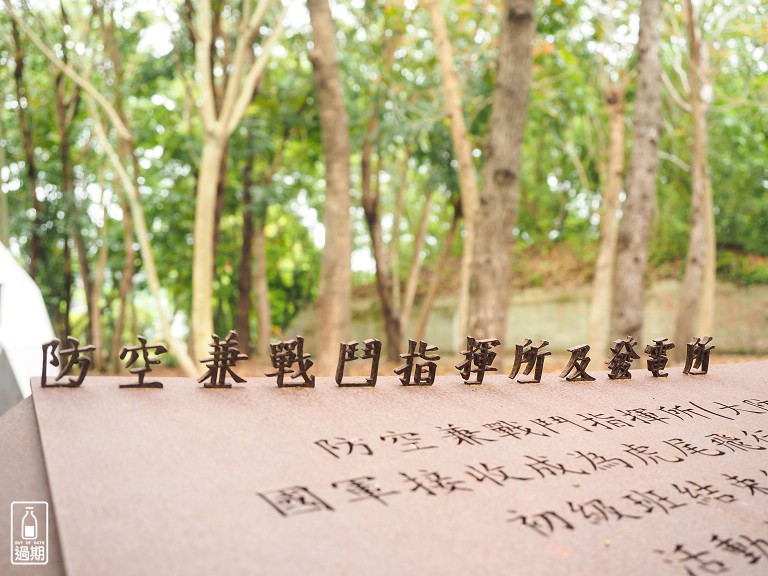 防空兼戰鬥指揮所及發電所
防空兼戰鬥指揮所(大
國軍接收成為虎尾飛行
初級班結束
活動
OUT OF DATE
過期